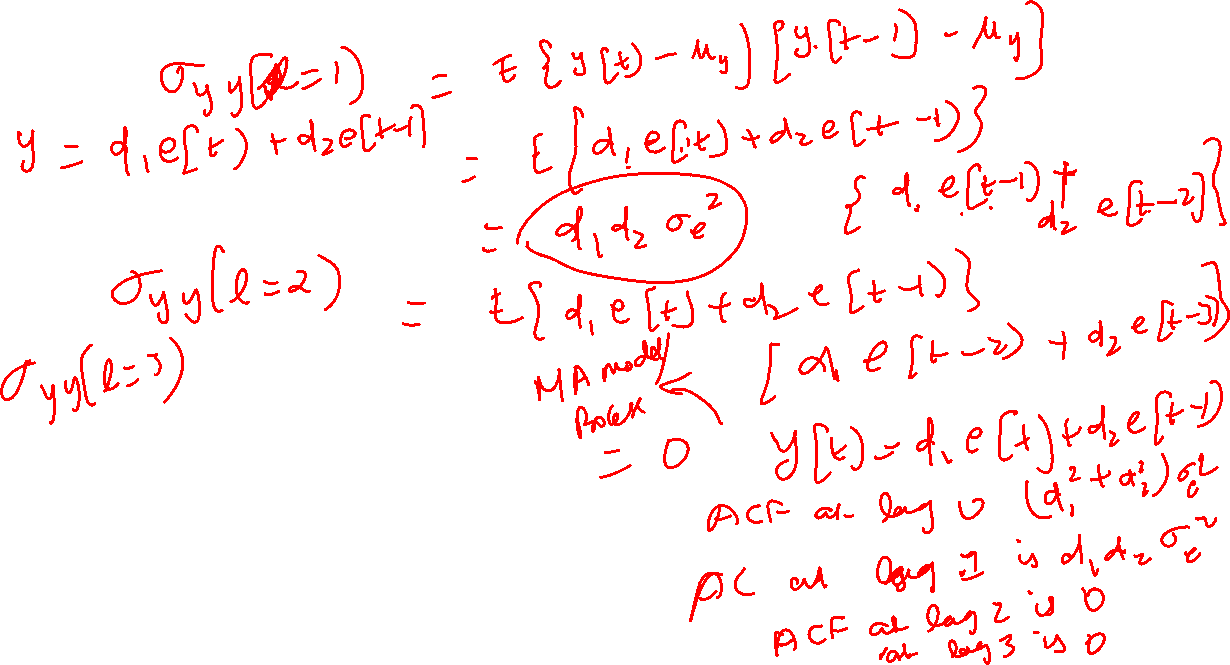 σyy(l=1) = E{y[t) - μy][y.[t-1) - μy]
y = d1e[t) + d2e[t-1] = E{d1e[t) + d2e[t-1)}
{d1 e[t-1) + d2 e[t-2]}
= d1 d2 σe²
σyy(l=2) = E{d1 e[t] + d2 e[t-1)}
[d1 e[t-2) + d2 e[t-3]}
σyy(l=3)
MA model
= 0
y[t) = d1 e[t) + d2 e[t-1)
ACF at lag 0 (d1² + d2²)σe²
AC at lag 1 is d1 d2 σe²
ACF at lag 2 is 0
at lag 3 is 0